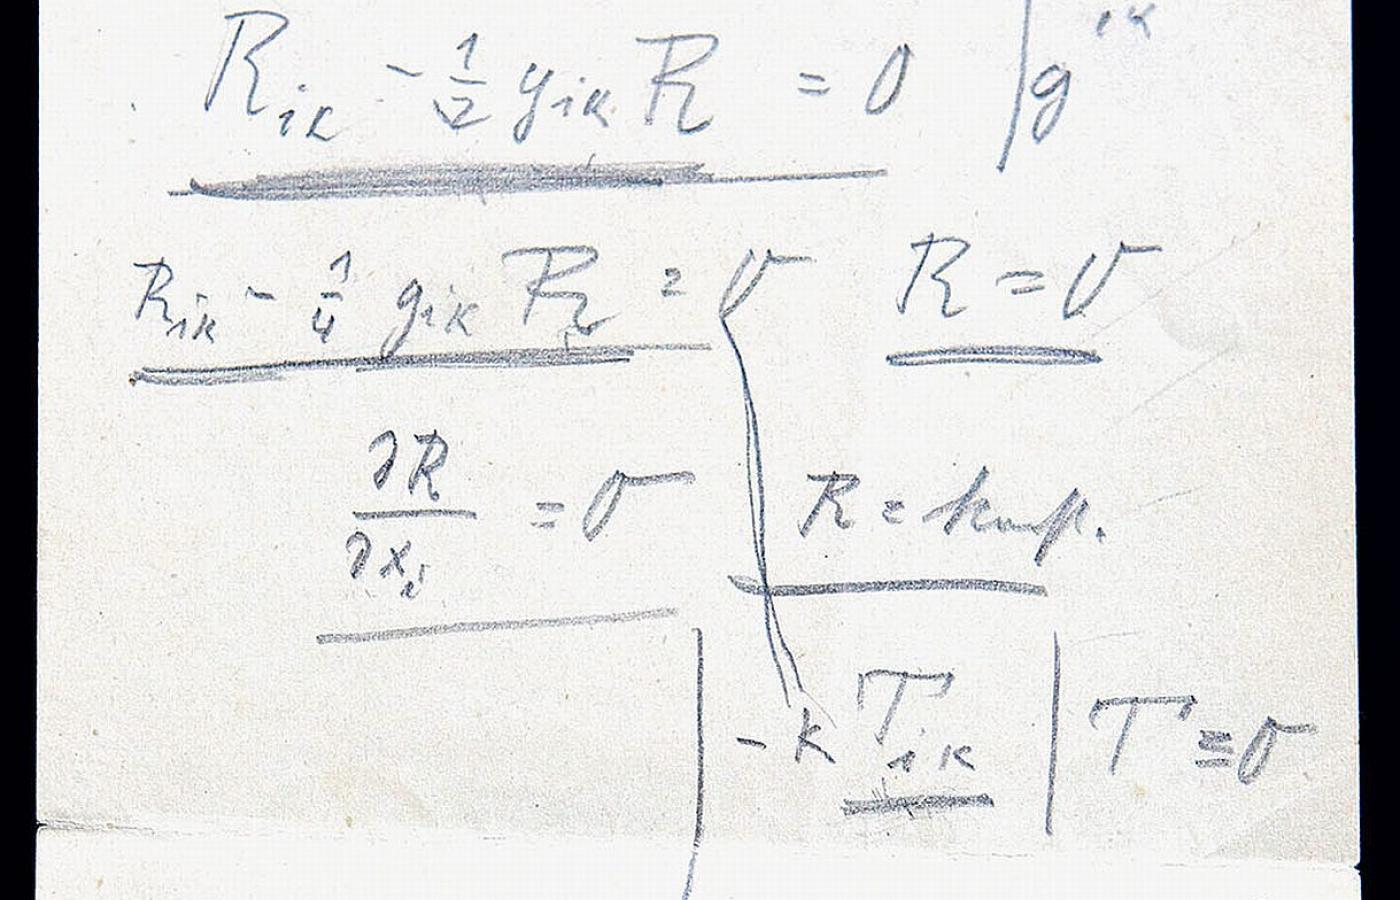 R_{ik} - \frac{1}{2} g_{ik} R = 0 | g^{ik}
R_{ik} - \frac{1}{4} g_{ik} R = 0 R = 0
\frac{∂R}{∂x_i} = 0 R = konst.
-k T_{ik} | T ≡ 0